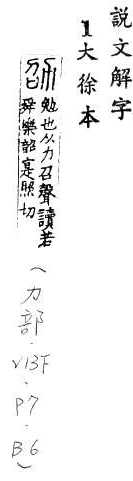 說文解字
1大徐本
劭
勉也从力召聲讀若
舜樂韶寔照切
(力部.V13F.P7.B6)